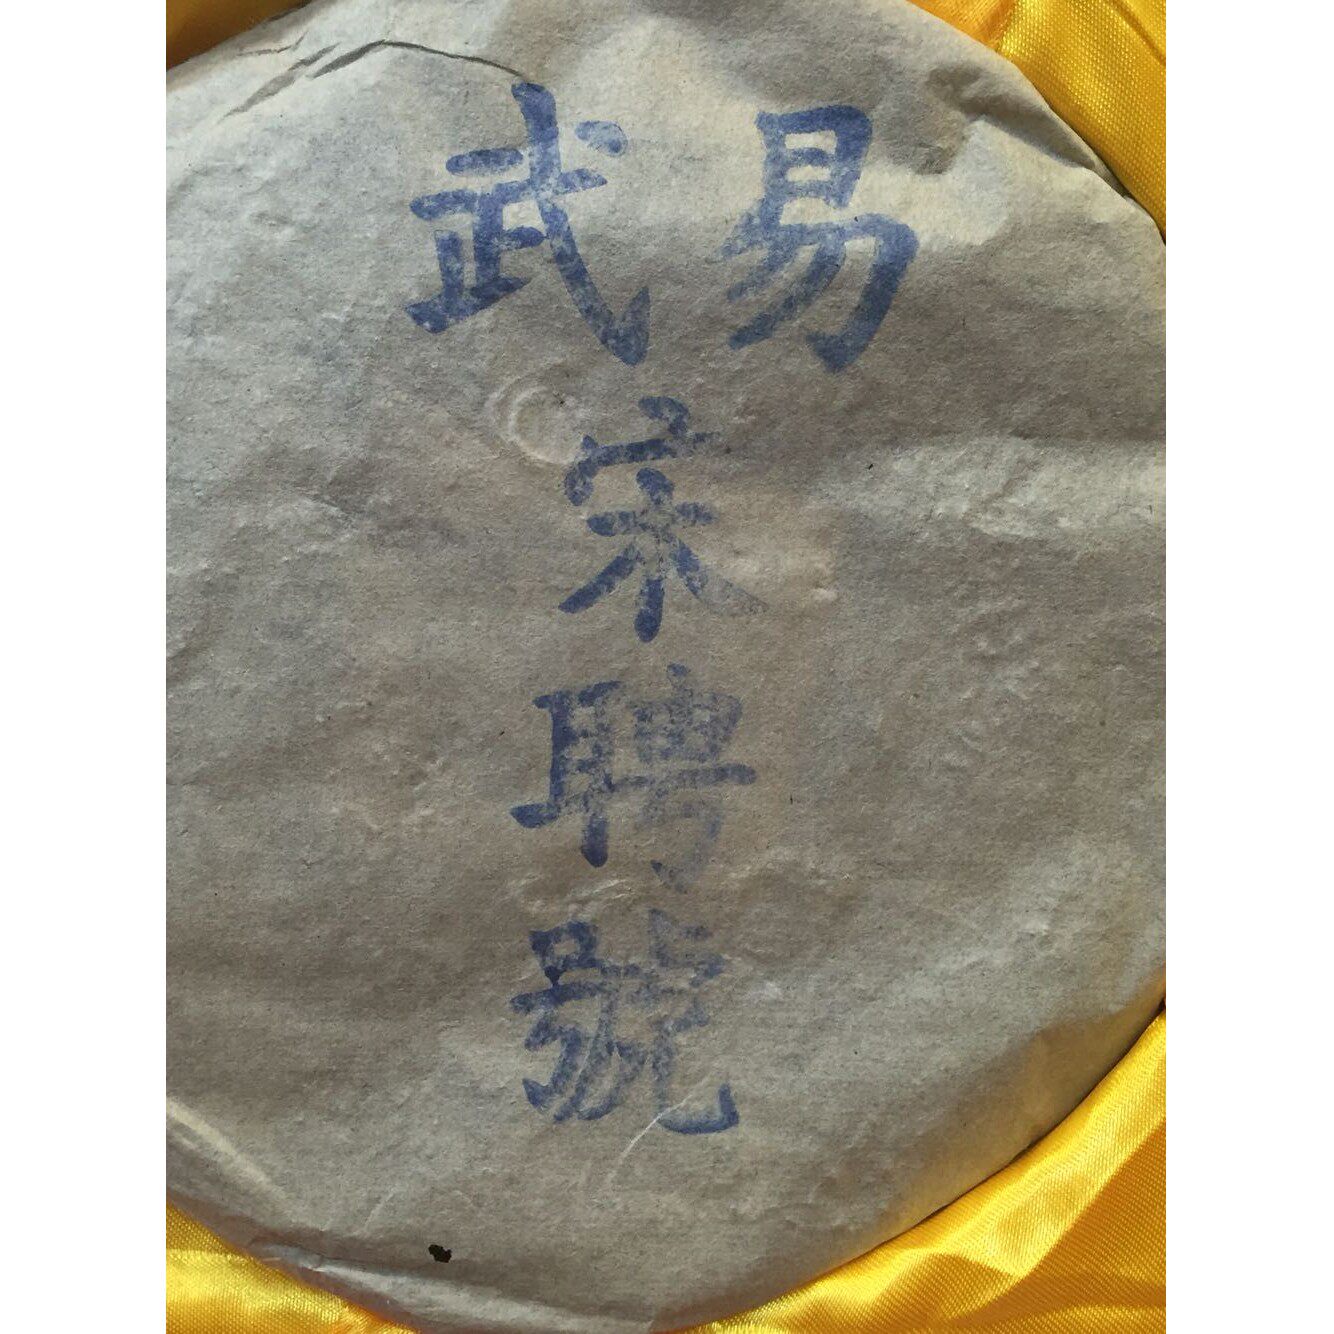 易武
宋
聘
號